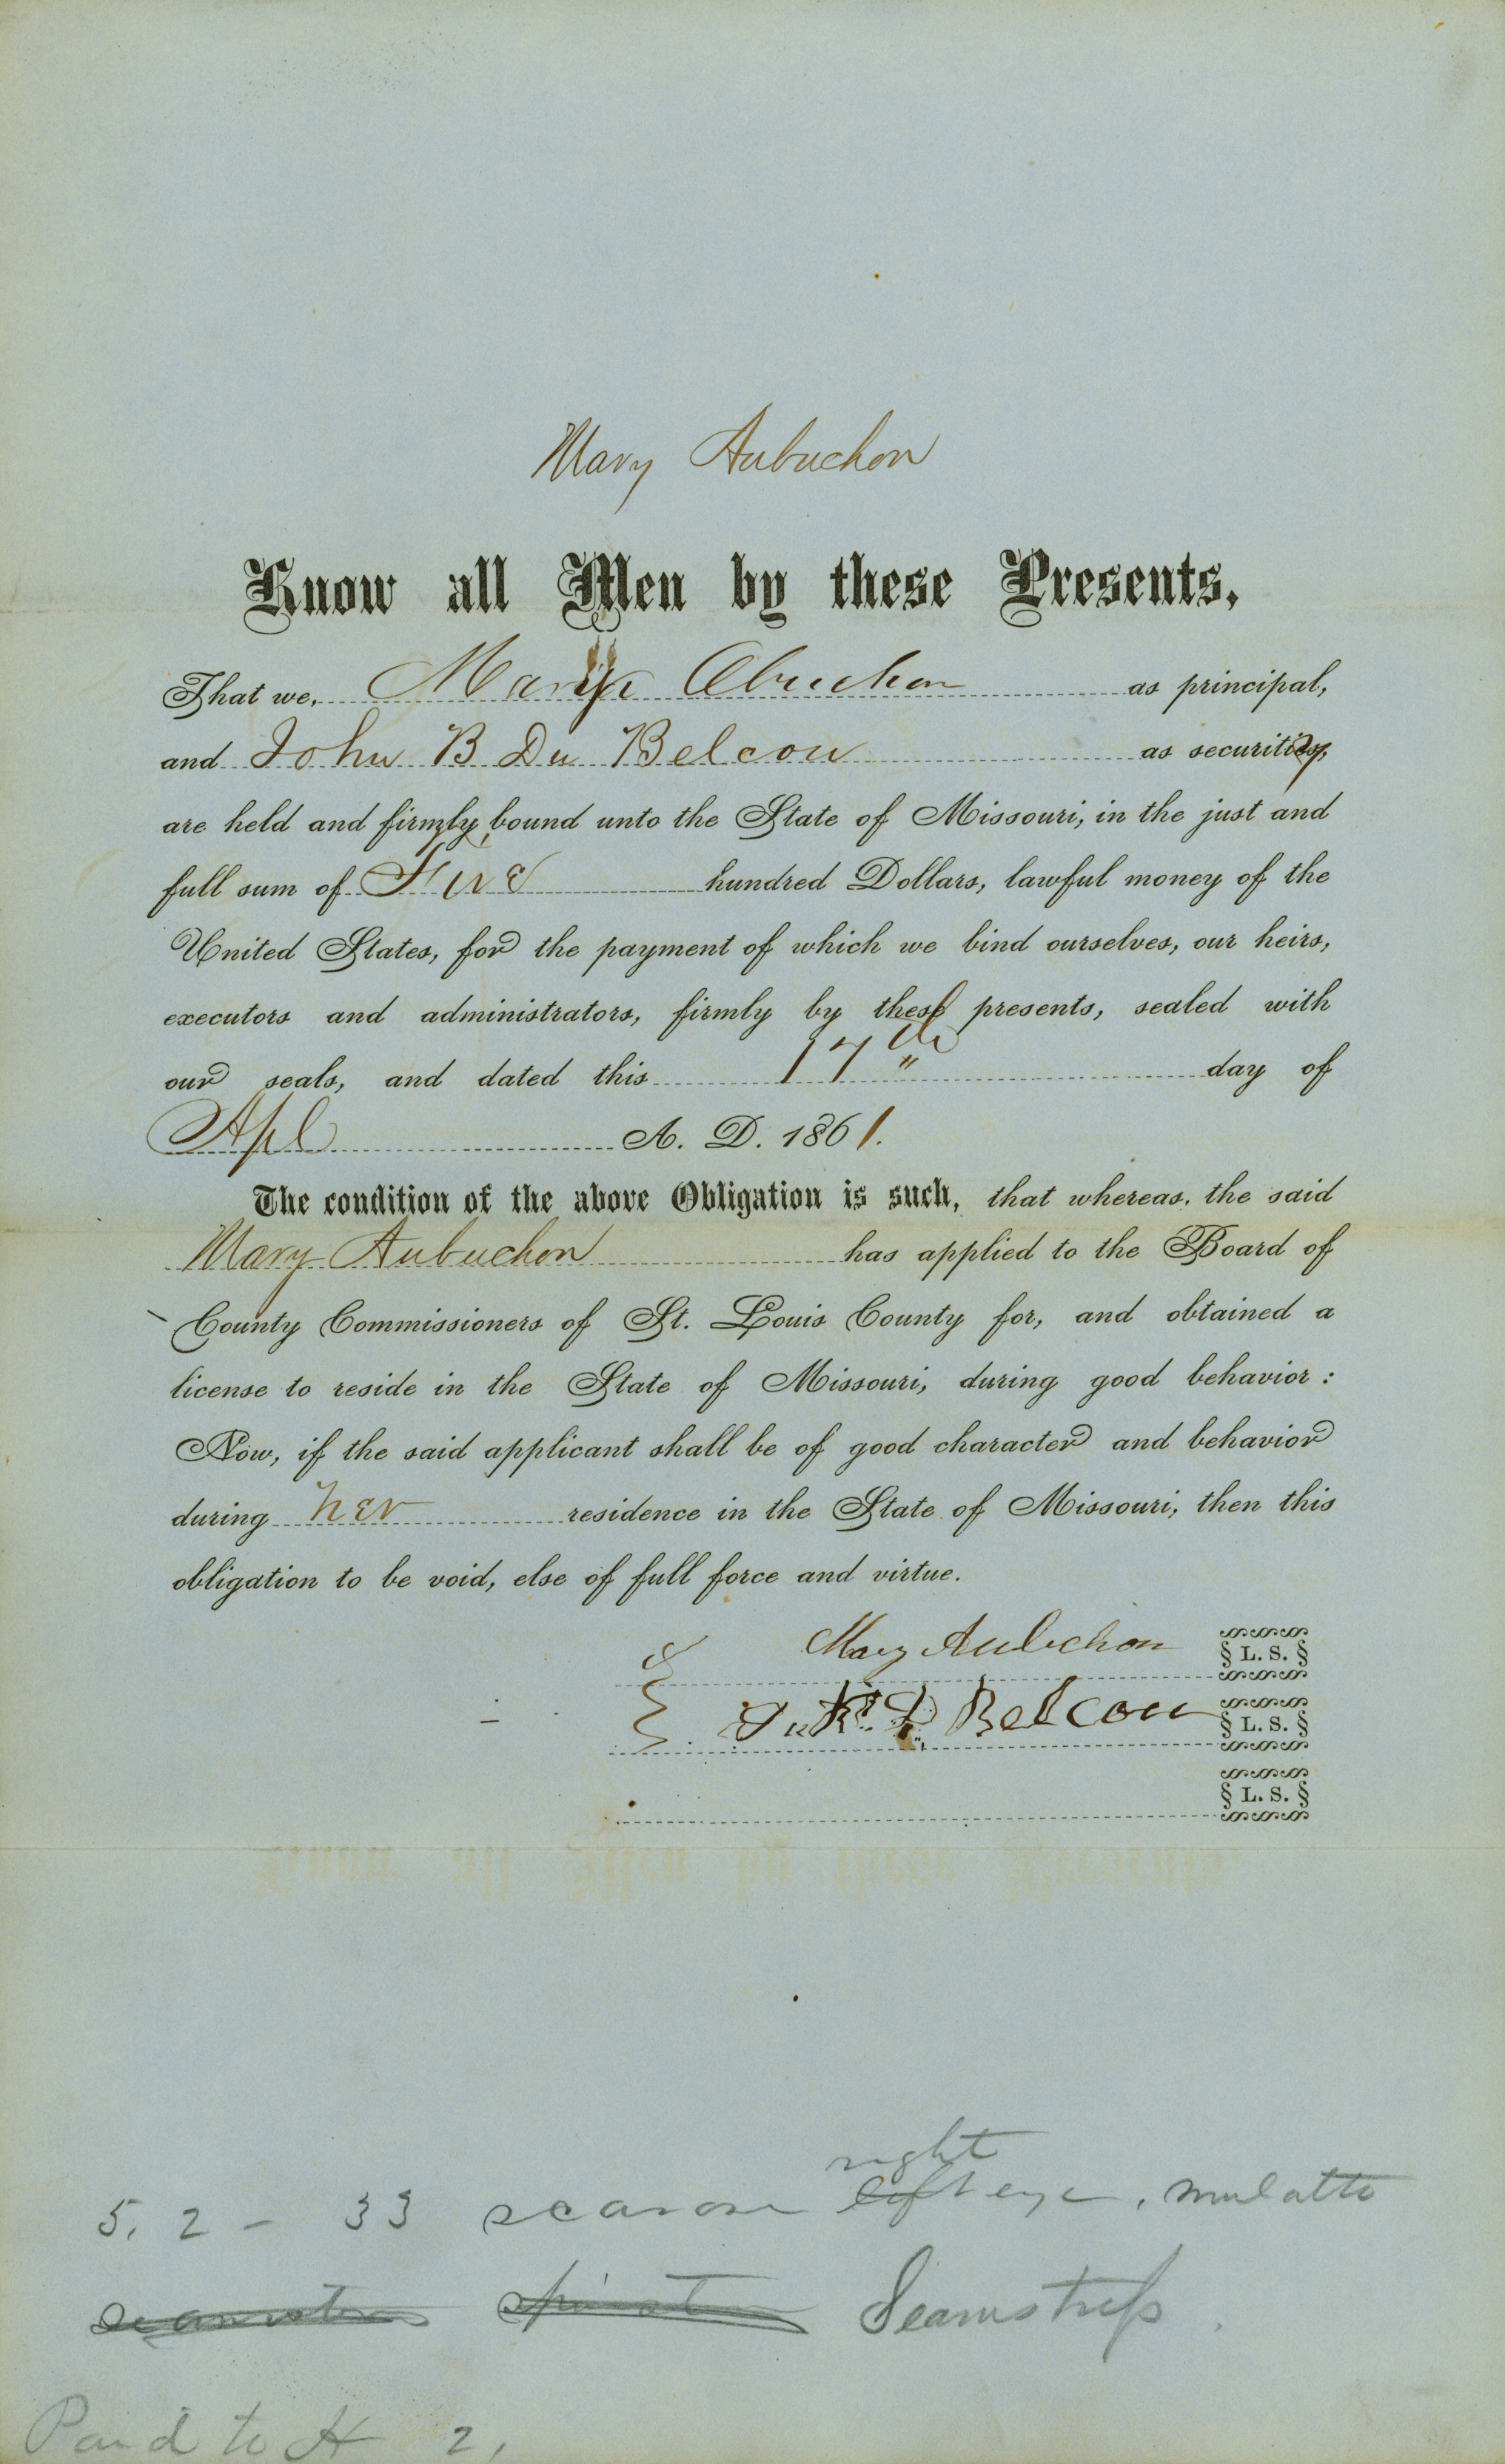 Mary Aubuchon
Know all Men by these Presents,
That we, Mary Abuchon as principal,
and John B Du Belcou as security,
are held and firmly bound unto the State of Missouri, in the just and
full sum of Five hundred Dollars, lawful money of the
United States, for the payment of which we bind ourselves, our heirs,
executors and administrators, firmly by these presents, sealed with
our seals, and dated this 17th day of
Apl A. D. 1861.
The condition of the above Obligation is such, that whereas, the said
Mary Aubuchon has applied to the Board of
County Commissioners of St. Louis County for, and obtained a
license to reside in the State of Missouri, during good behavior:
Now, if the said applicant shall be of good character and behavior
during her residence in the State of Missouri, then this
obligation to be void, else of full force and virtue.
Mary Aubuchon L. S.
Belcou L. S.
L. S.
right
5. 2 - 33 scar over left eye, mulatto
seamstress spinster Seamstress.
Paid to H 2,